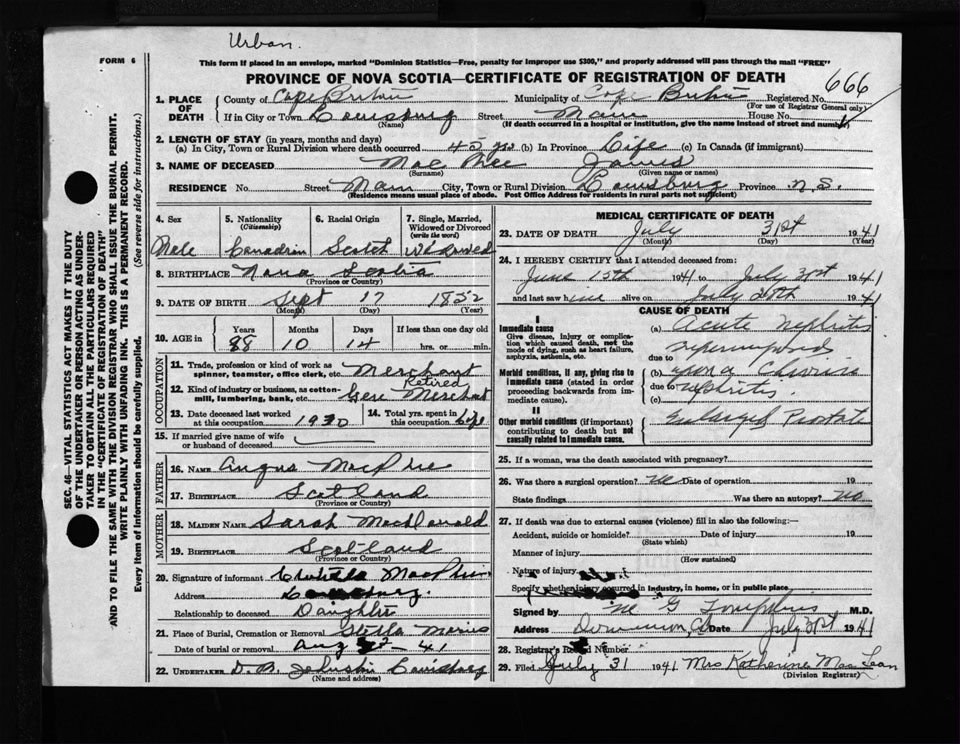 Urban.
FORM 6
This form if placed in an envelope, marked "Dominion Statistics—Free, penalty for improper use $300," and properly addressed will pass through the mail "FREE"
PROVINCE OF NOVA SCOTIA—CERTIFICATE OF REGISTRATION OF DEATH
666
SEC. 46—VITAL STATISTICS ACT MAKES IT THE DUTY
OF THE UNDERTAKER OR PERSON ACTING AS UNDER-
TAKER TO OBTAIN ALL THE PARTICULARS REQUIRED
IN THE "CERTIFICATE OF REGISTRATION OF DEATH"
AND TO FILE THE SAME WITH THE DIVISION REGISTRAR WHO SHALL ISSUE THE BURIAL PERMIT.
WRITE PLAINLY WITH UNFADING INK. THIS IS A PERMANENT RECORD.
Every item of information should be carefully supplied. (See reverse side for instructions.)
1. PLACE OF DEATH County of Cape Breton Municipality of Cape Breton Registered No.
(For use of Registrar General only)
If in City or Town Louisburg Street Main House No.
(Name) (If death occurred in a hospital or institution, give the name instead of street and number)
2. LENGTH OF STAY (in years, months and days)
(a) In City, Town or Rural Division where death occurred 45 yrs (b) In Province Life (c) In Canada (if immigrant)
3. NAME OF DECEASED MacPhee James
(Surname) (Given name or names)
RESIDENCE No. Street Main City, Town or Rural Division Louisburg Province N.S.
(Residence means usual place of abode. Post Office Address for residents in rural parts not sufficient)
4. Sex 5. Nationality (Citizenship) 6. Racial Origin 7. Single, Married, Widowed or Divorced (write the word)
Male Canadian Scotch Widowed
8. BIRTHPLACE Nova Scotia
(Province or Country)
9. DATE OF BIRTH Sept 17 1852
(Month) (Day) (Year)
10. AGE in Years Months Days If less than one day old
88 10 14 hrs. or min.
OCCUPATION
11. Trade, profession or kind of work as spinner, teamster, office clerk, etc. Merchant
Retired
12. Kind of industry or business, as cotton-mill, lumbering, bank, etc. Gen Merchant
13. Date deceased last worked at this occupation 1930 14. Total yrs. spent in this occupation Life
15. If married give name of wife or husband of deceased
FATHER
16. NAME Angus MacPhee
17. BIRTHPLACE Scotland
(Province or Country)
MOTHER
18. MAIDEN NAME Sarah MacDonald
19. BIRTHPLACE Scotland
(Province or Country)
20. Signature of informant MacPhee
Address Louisburg.
Relationship to deceased Daughter
21. Place of Burial, Cremation or Removal Stella Maris
Date of burial or removal Aug 2 - 41
22. UNDERTAKER D. B. Louisburg
(Name and address)
MEDICAL CERTIFICATE OF DEATH
23. DATE OF DEATH July 31st 1941
(Month) (Day) (Year)
24. I HEREBY CERTIFY that I attended deceased from:
June 15th 1941 to July 31st 1941
and last saw him alive on July 1941
CAUSE OF DEATH
I
Immediate cause (a) Acute Nephritis
Give disease, injury or complication which caused death, not the mode of dying, such as heart failure, asphyxia, asthenia, etc.
superimposed
due to
Morbid conditions, if any, giving rise to immediate cause (stated in order proceeding backwards from immediate cause).
(b) upon a Chronic
due to nephritis.
(c)
II
Other morbid conditions (if important) contributing to death but not causally related to immediate cause.
Enlarged Prostate
25. If a woman, was the death associated with pregnancy?
26. Was there a surgical operation? No Date of operation 19
State findings Was there an autopsy? No
27. If death was due to external causes (violence) fill in also the following:—
Accident, suicide or homicide? Date of injury 19
(State which)
Manner of injury
(How sustained)
Nature of injury
Specify whether injury occurred in industry, in home, or in public place
Signed by M.D.
Address Dominion Date July 31st 1941
28. Registrar's Record Number
29. Filed July 31 1941 Mrs Katherine MacLean
(Division Registrar)